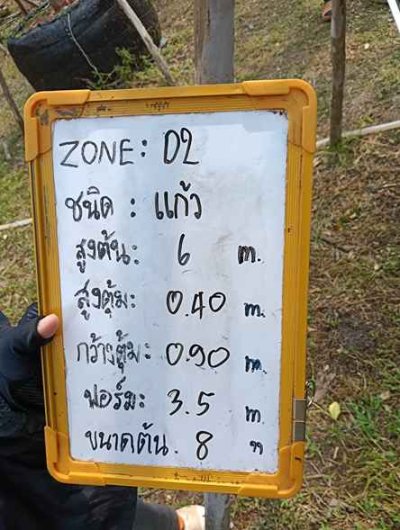 ZONE: D2
ชนิด : แก้ว
สูงต้น: 6 m.
สูงตุ้ม: 0.40 m.
กว้างตุ้ม: 0.90 m.
ฟอร์ม: 3.5 m
ขนาดต้น. 8 "